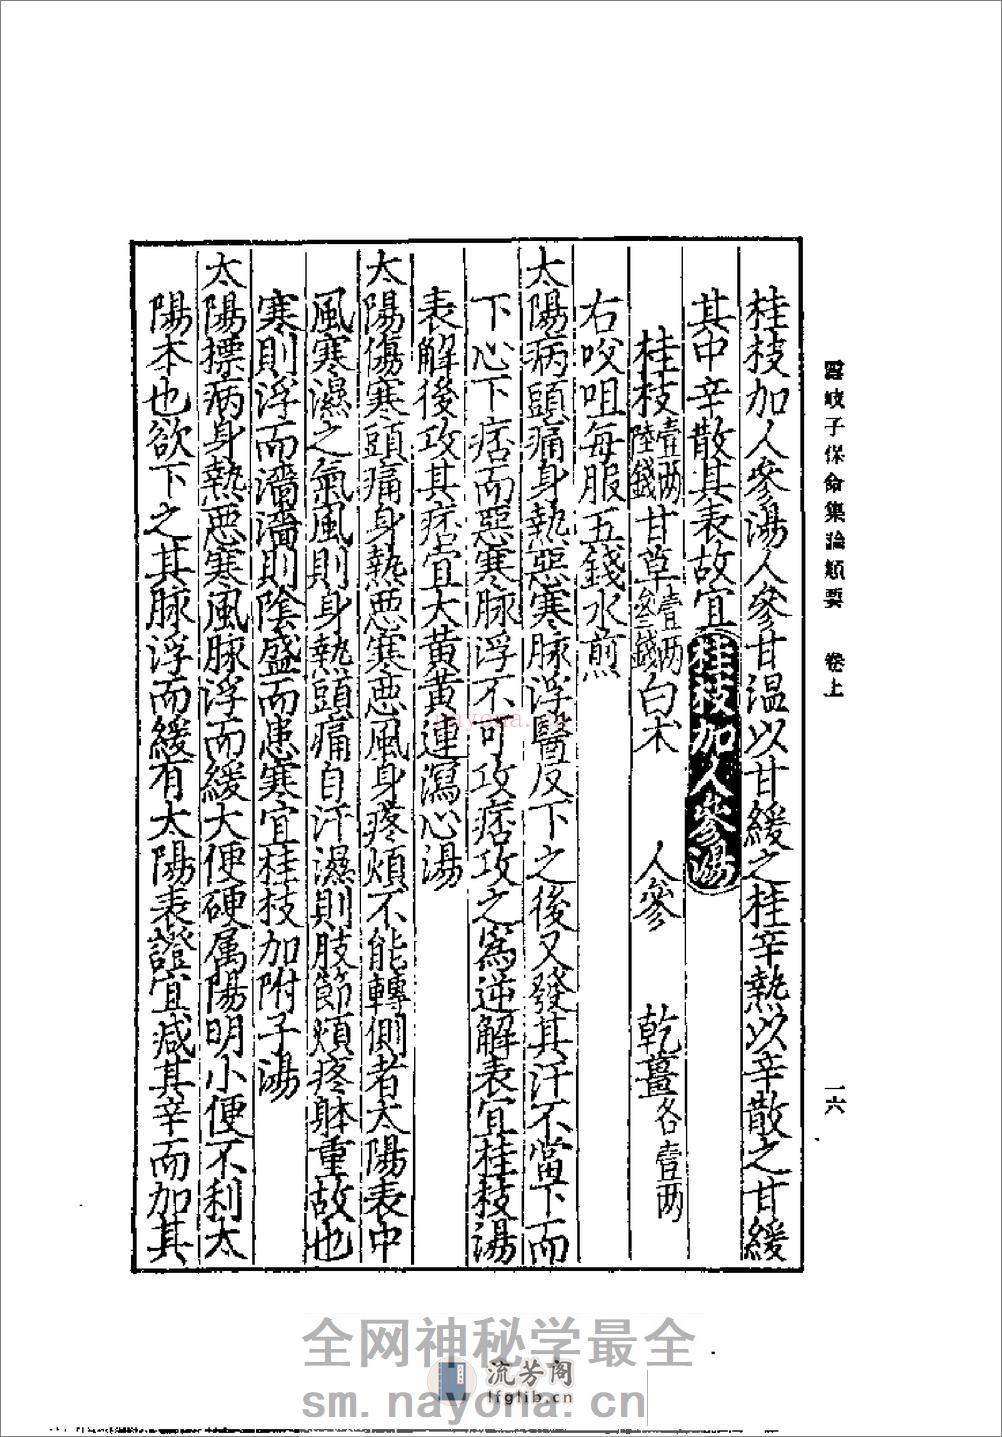 雲岐子保命集論類要　卷上
一六
桂枝加人參湯人參甘温以甘緩之桂辛熱以辛散之甘緩
其中辛散其表故宜桂枝加人參湯
桂枝壹两陸錢甘草壹两叁錢白术　人參　乾薑各壹两
右㕮咀每服五錢水煎
太陽病頭痛身熱惡寒脉浮醫反下之後又發其汗不當下而
下心下痞而惡寒脉浮不可攻痞攻之爲逆解表宜桂枝湯
表解後攻其痞宜大黃黃連瀉心湯
太陽傷寒頭痛身熱惡寒惡風身疼煩不能轉側者太陽表中
風寒濕之氣風則身熱頭痛自汗濕則肢節煩疼躰重故也
寒則浮而濇濇則陰盛而患寒宜桂枝加附子湯
太陽摽病身熱惡寒風脉浮而緩大便硬属陽明小便不利太
陽本也欲下之其脉浮而緩有太陽表證宜减其辛而加其
nayona.cn
全网神秘学最全
流芳阁
lfglib.cn
sm.nayona.cn